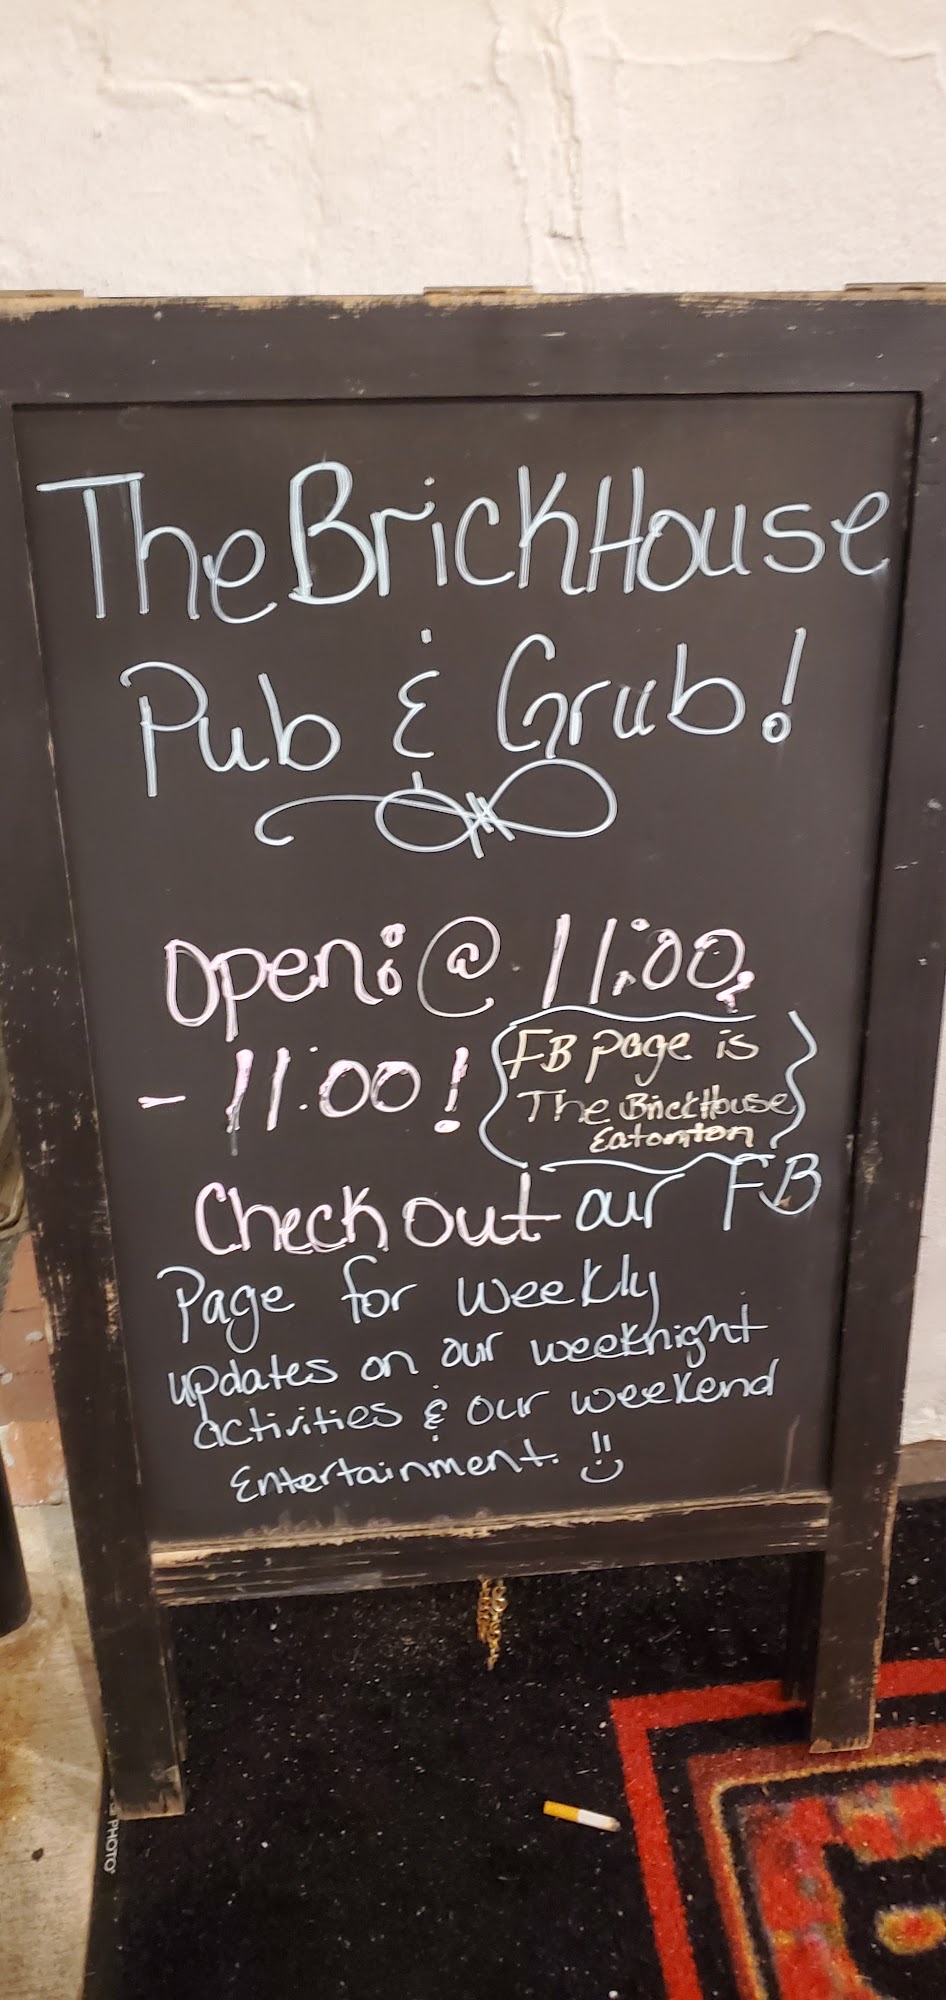 The BrickHouse
Pub & Grub!
Open: @ 11:00
- 11:00!
FB page is
The BrickHouse
Eatonton
Check out our FB
Page for weekly
updates on our weeknight
activities & our weekend
Entertainment. !!
PHOTO